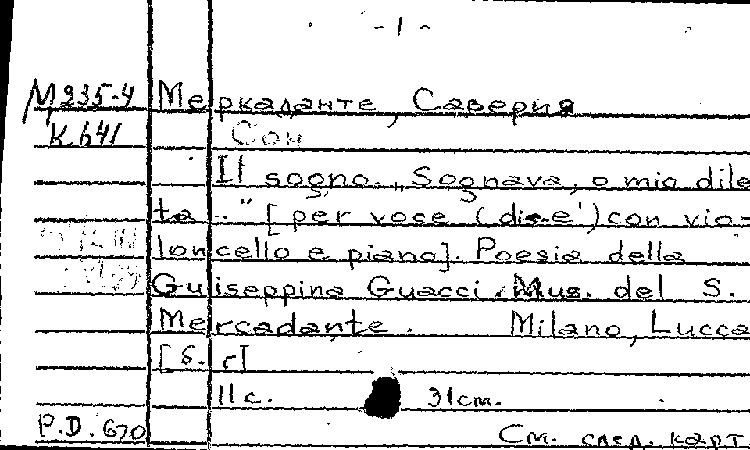 - 1 -
М235-4 Меркаданте, Саверия
К 641 Сон
Il sogno. „Sognava, o mio dile
ta." [per voce (di e') con vio-
loncello e piano]. Poesia della
Guiseppina Guacci. Mus. del S.
Mercadante. Milano, Lucca
[S. г]
11 с. 31 см.
P.D. 670 См. след. карт